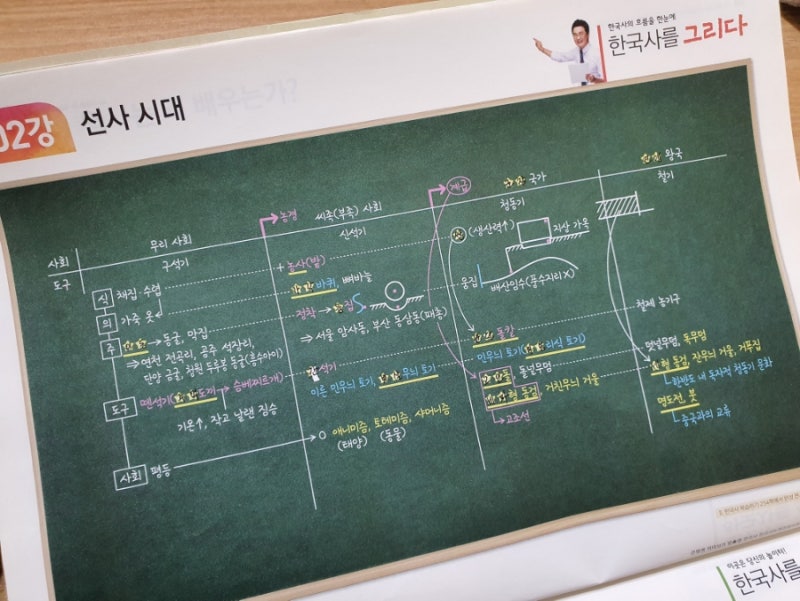 한국사의 흐름을 한눈에
한국사를 그리다
02강 선사 시대
왕국
국가
계급
농경
씨족(부족) 사회
무리 사회
사회
철기
청동기
신석기
구석기
도구
(생산력↑)
지상 가옥
+ 농사(밭)
식 채집·수렵
바퀴, 뼈바늘
움집
배산임수(풍수지리X)
의 가죽 옷
정착 → 집
철제 농기구
주 → 동굴, 막집
⇒ 서울 암사동, 부산 동삼동(패총)
돌칼
⇒ 연천 전곡리, 공주 석장리,
단양 금굴, 창원 두루봉 동굴(흥수아이)
민무늬 토기( 리식 토기)
널무덤, 독무덤
석기
돌 돌널무덤
형 동검, 잔무늬 거울, 거푸집
도구 뗀석기( 도끼 → 슴베찌르개)
이른 민무늬 토기, 무늬 토기
형 동검 거친무늬 거울
한반도 내 독자적 청동기 문화
기온↑, 작고 날랜 짐승
→ 고조선
명도전, 붓
중국과의 교류
애니미즘, 토테미즘, 샤머니즘
(태양) (동물)
사회 평등
이곳은 당신의 놀이터!
한국사를